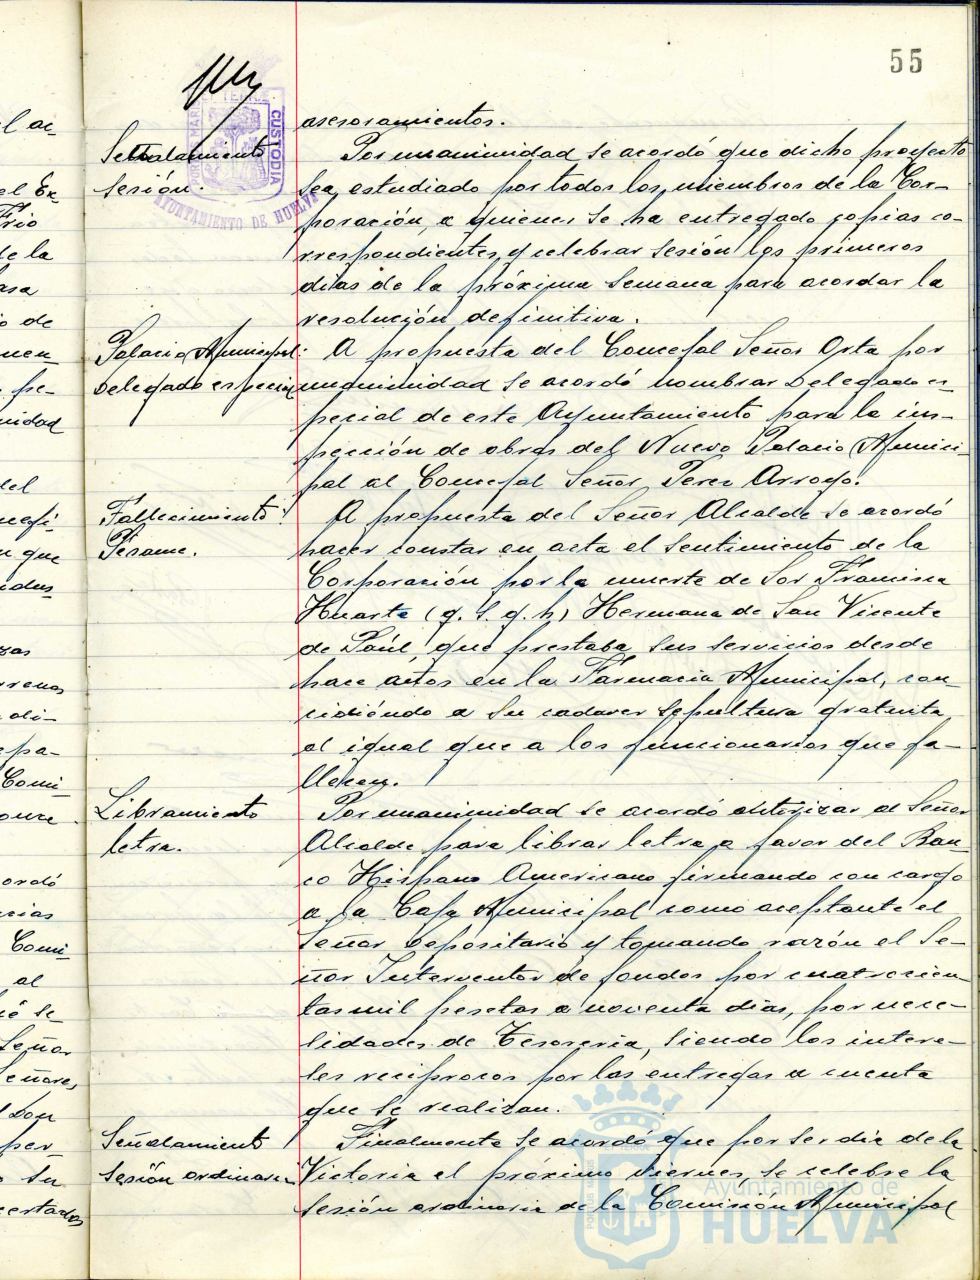 55
asesoramientos.
Señalamiento
sesión.
Por unanimidad se acordó que dicho proyecto
sea estudiado por todos los miembros de la Cor-
poración, a quienes se ha entregado copias co-
rrespondientes, y celebrar sesión los primeros
dias de la próxima semana para acordar la
resolución definitiva.
Palacio Municipal:
Delegado especial
A propuesta del Concejal Señor Orta por
unanimidad se acordó nombrar Delegado es-
pecial de este Ayuntamiento para la ins-
pección de obras del Nuevo Palacio Munici-
pal al Concejal Señor Perez Arroyo.
Fallecimiento:
Pésame.
A propuesta del Señor Alcalde se acordó
hacer constar en acta el sentimiento de la
Corporación por la muerte de Sor Francisca
Huarte (q. s. g. h) Hermana de San Vicente
de Paúl que prestaba sus servicios desde
hace años en la Farmacia Municipal, con-
cidiéndo a su cadaver sepultura gratuita
al igual que a los funcionarios que fa-
llecen.
Libramiento
letra.
Por unanimidad se acordó autorizar al Señor
Alcalde para librar letra a favor del Ban-
co Hispano Americano firmando con cargo
a la Caja Municipal como aceptante el
Señor Depositario y tomando razón el Se-
ñor Interventor de fondos por cuatrocien-
tas mil pesetas a noventa dias, por nece-
sidades de Tesoreria, siendo los intere-
ses reciprocos por las entregas a cuenta
que se realizan.
Señalamiento
sesión ordinaria
Finalmente se acordó que por ser dia de la
Victoria el próximo viernes, se celebre la
sesión ordinaria de la Comisión Municipal
CUSTODIA
AYUNTAMIENTO DE HUELVA
Ayuntamiento de
HUELVA